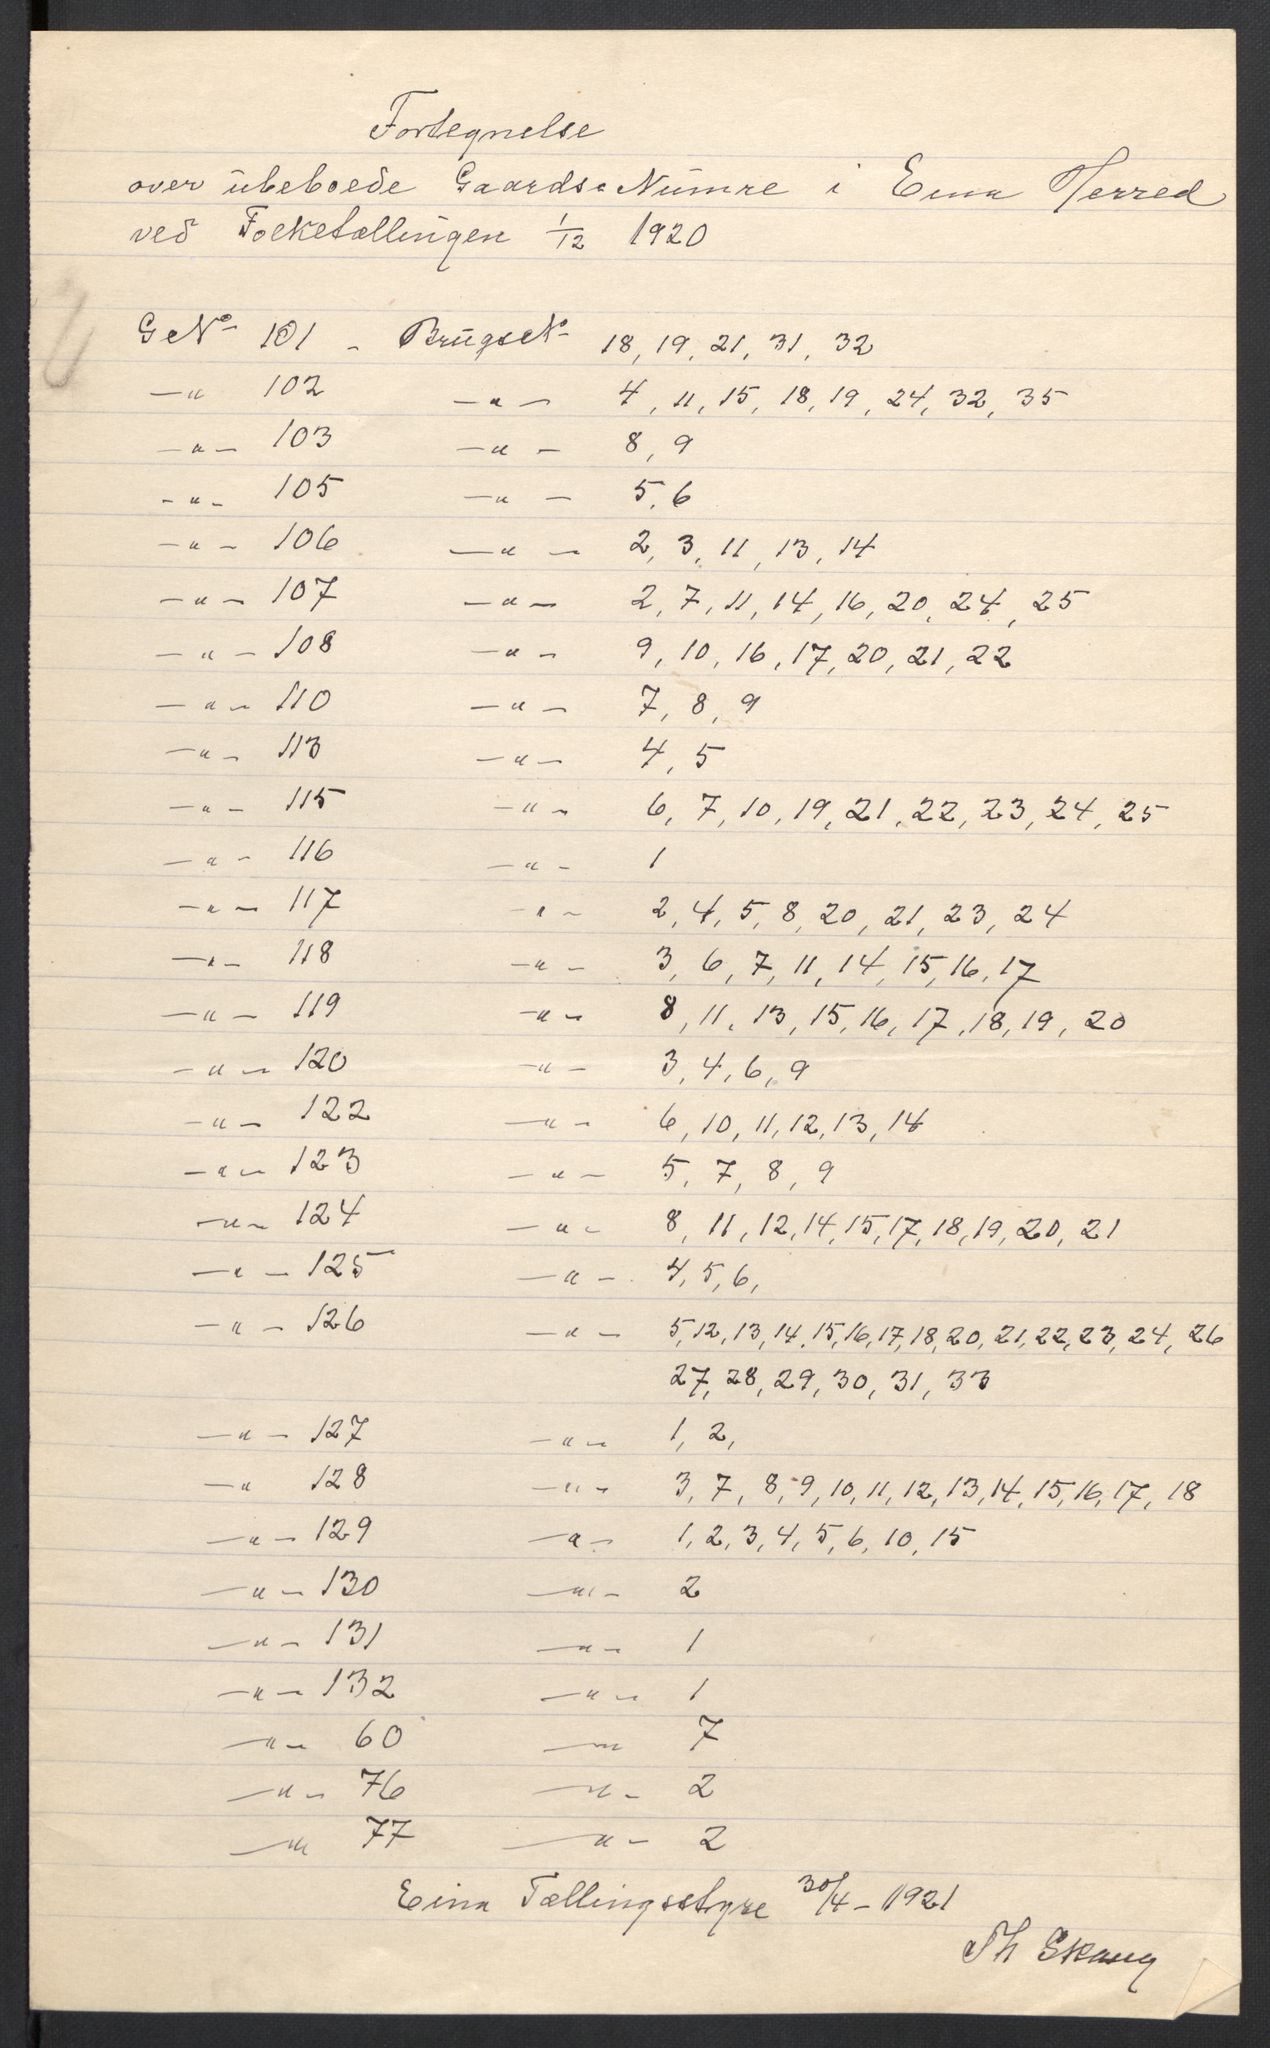 Fortegnelse
over ubeboede Gaards-Numre i Eina Herred
ved Folketællingen 1/12 1920
G No 101 - Brugs No 18, 19, 21, 31, 32
—"— 102 —"— 4, 11, 15, 18, 19, 24, 32, 35
—"— 103 —"— 8, 9
—"— 105 —"— 5, 6
—"— 106 —"— 2, 3, 11, 13, 14
—"— 107 —"— 2, 7, 11, 14, 16, 20, 24, 25
—"— 108 —"— 9, 10, 16, 17, 20, 21, 22
—"— 110 —"— 7, 8, 9
—"— 113 —"— 4, 5
—"— 115 —"— 6, 7, 10, 19, 21, 22, 23, 24, 25
—"— 116 —"— 1
—"— 117 —"— 2, 4, 5, 8, 20, 21, 23, 24
—"— 118 —"— 3, 6, 7, 11, 14, 15, 16, 17
—"— 119 —"— 8, 11, 13, 15, 16, 17, 18, 19, 20
—"— 120 —"— 3, 4, 6, 9
—"— 122 —"— 6, 10, 11, 12, 13, 14
—"— 123 —"— 5, 7, 8, 9
—"— 124 —"— 8, 11, 12, 14, 15, 17, 18, 19, 20, 21
—"— 125 —"— 4, 5, 6,
—"— 126 —"— 5, 12, 13, 14, 15, 16, 17, 18, 20, 21, 22, 23, 24, 26
27, 28, 29, 30, 31, 33
—"— 127 —"— 1, 2,
—"— 128 —"— 3, 7, 8, 9, 10, 11, 12, 13, 14, 15, 16, 17, 18
—"— 129 —"— 1, 2, 3, 4, 5, 6, 10, 15
—"— 130 —"— 2
—"— 131 —"— 1
—"— 132 —"— 1
—"— 60 —"— 7
—"— 76 —"— 2
—"— 77 —"— 2
Eina Tællingsstyre 30/4 - 1921
Th Skaug